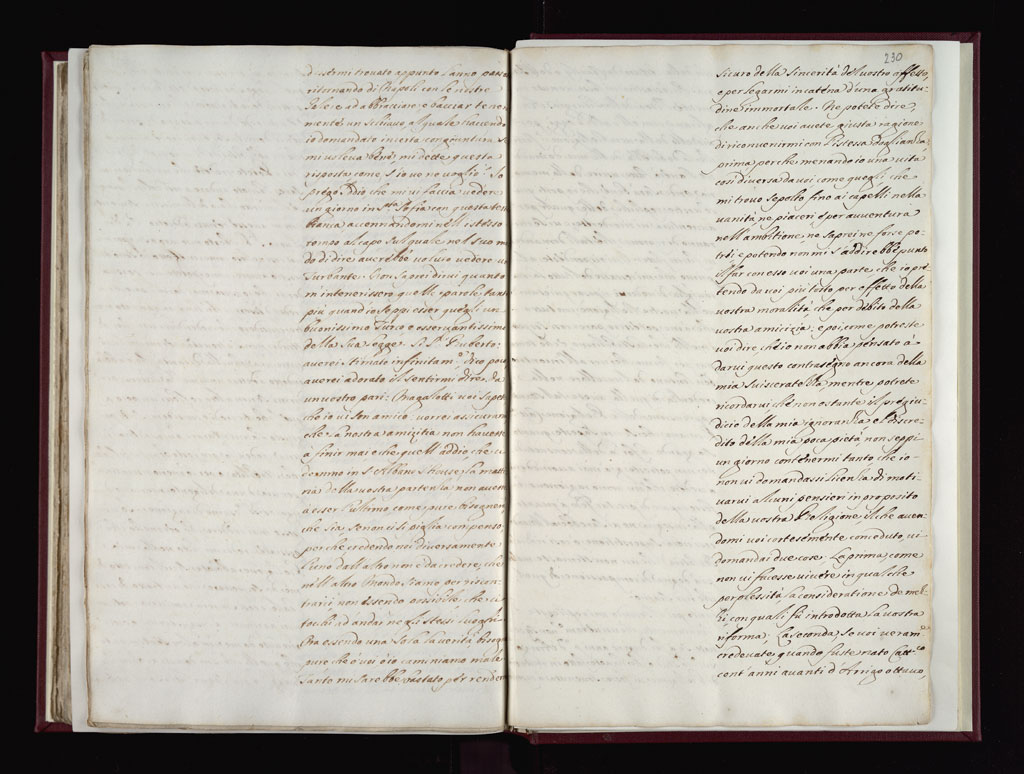 d'essermi trovato appunto l'anno passa
ritornando di Napoli con le nostre
Galere ad abbracciare, e bacciar tenera
mente un Schiavo, al quale havendo
io domandato in certa congiuntura se
mi voleva bene mi dette questa
risposta come s'io ve ne voglio? Io
prego Iddio che mi vi faccia vedere
un giorno in S.ta Sofia con questa
bianca accennandomi nell'istesso
tempo al capo sul quale nel suo mo
do di dire averebbe voluto vedere un
Turbante. Non saprei dirvi quanto
m'intenerissero quelle parole tanto
più quand'io seppi esser quegli un
buonissimo Turco e osservantissimo
della sua legge. Si S.r Uberto
averei stimato infinitam.e dico poco
averei adorato il sentirmi dire da
un vostro pari: Magalotti voi sapete
ch'io vi son amico, vorrei assicurarmi
che la nostra amizitia non havesse
a finir mai e che quell'addio che ci
demmo in S. Albano strusse la matti
na della vostra partenza non avesse
a esser l'ultimo come pure bisogna
che sia se non ci si piglia compenso
perché credendo noi diversamente
l'uno dall'altro non è da credere, che
nell'altro Mondo siamo per riscon
trarci, non essendo possibile, che ci
tocchi ad andar ne gli stessi luoghi
Ora essendo una sola la verità, bisogna
pure che ò voi ò io caminiamo male
tanto mi sarebbe bastato per render
230
sicuro della sincerità del vostro affetto,
e per legarmi in catena d'una gratitu-
dine immortale. Ne potete dire,
che anche voi avete giusta ragione
di riconvenirmi con l'istessa doglianza,
prima perche menando io una vita
così diversa da voi come quegli che
mi trovo sepolto fino ai capelli nella
vanità ne piaceri e per avventura
nell'ambitione, ne saprei ne forse po-
trei e potendo non mi s'addirebbe punto
il far con esso voi una parte, che io pre
tendo da voi più tosto per effetto della
vostra moralità, che per debito della
vostra amicizia, e poi, come potreste
voi dire, ch'io non abbia pensato à
darvi questo contrasegno ancora della
mia sviscerate Zza mentre potrete
ricordarvi che non ostante il pregiu-
dicio della mia ignoranza e'l discre-
dito della mia poca pietà, non seppi
un giorno contenermi tanto che io
non vi domandassi licenza di moti-
varvi alcuni pensieri in proposito
della vostra Religione, il che aven-
domi voi cortesemente conceduto, vi
domandai due cose. La prima, come
non vi facesse vivere in qualche
perplessità la consideratione de mez-
zi, con quali fù introdotta la vostra
riforma; La seconda, se voi veram.e
credevate, quando fuste nato Catt.co
cent'anni avanti d'Arrigo ottavo,